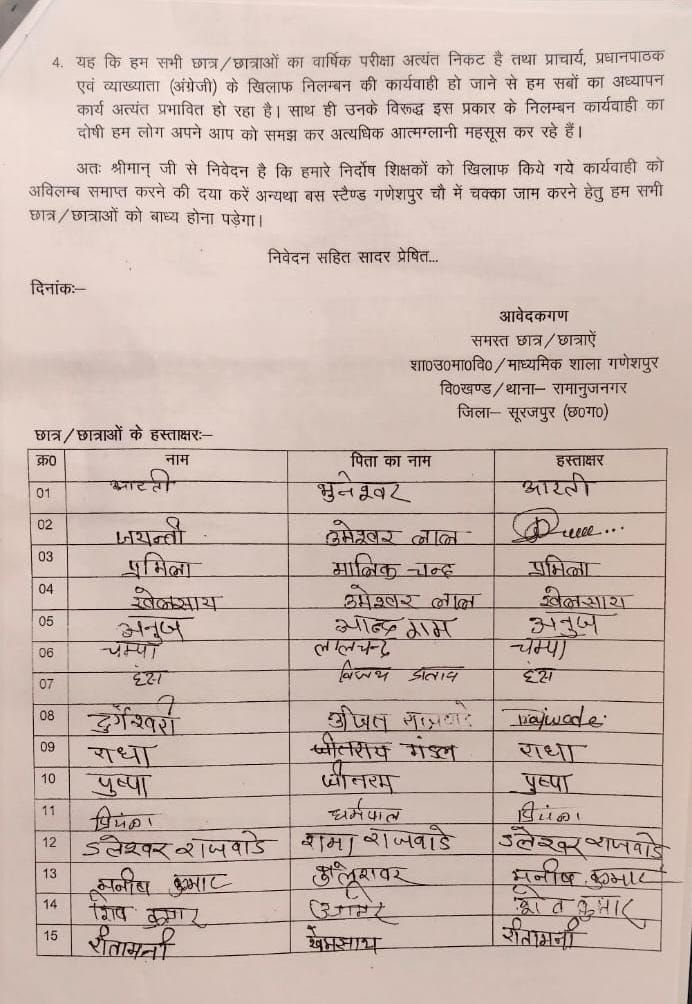 4. यह कि हम सभी छात्र/छात्राओं का वार्षिक परीक्षा अत्यंत निकट है तथा प्राचार्य, प्रधानपाठक
एवं व्याख्याता (अंग्रेजी) के खिलाफ निलम्बन की कार्यवाही हो जाने से हम सबों का अध्यापन
कार्य अत्यंत प्रभावित हो रहा है। साथ ही उनके विरूद्ध इस प्रकार के निलम्बन कार्यवाही का
दोषी हम लोग अपने आप को समझ कर अत्यधिक आत्मग्लानी महसूस कर रहे हैं।
अतः श्रीमान् जी से निवेदन है कि हमारे निर्दोष शिक्षकों को खिलाफ किये गये कार्यवाही को
अविलम्ब समाप्त करने की दया करें अन्यथा बस स्टैण्ड गणेशपुर चौ में चक्का जाम करने हेतु हम सभी
छात्र/छात्राओं को बाध्य होना पड़ेगा।
निवेदन सहित सादर प्रेषित...
दिनांकः–
आवेदकगण
समस्त छात्र/छात्राऐं
शा०उ०मा०वि०/माध्यमिक शाला गणेशपुर
वि०खण्ड/थाना– रामानुजनगर
जिला– सूरजपुर (छ०ग०)
छात्र/छात्राओं के हस्ताक्षरः–
क्र० नाम पिता का नाम हस्ताक्षर
01 आरती भुनेश्वर आरती
02 जयन्ती उमेश्वर लाल
03 प्रमिला मानिक चन्द प्रमिला
04 खेलसाय उमेश्वर लाल खेलसाय
05 अनुज राम अनुज
06 चम्पा लालचन्द्र चम्पा
07 विजय
08 दुर्गेश्वरी rajwade
09 राधा जीतराय मंडल राधा
10 पुष्पा जीतराम पुष्पा
11 प्रियंका धर्मपाल प्रियंका
12 डलेश्वर राजवाडे रामा राजवाडे डलेश्वर राजवाडे
13 मनीष कुमार मनीष कुमार
14 शिव कुमार कुमार
15 रीतामनी खेमसाय रीतामनी